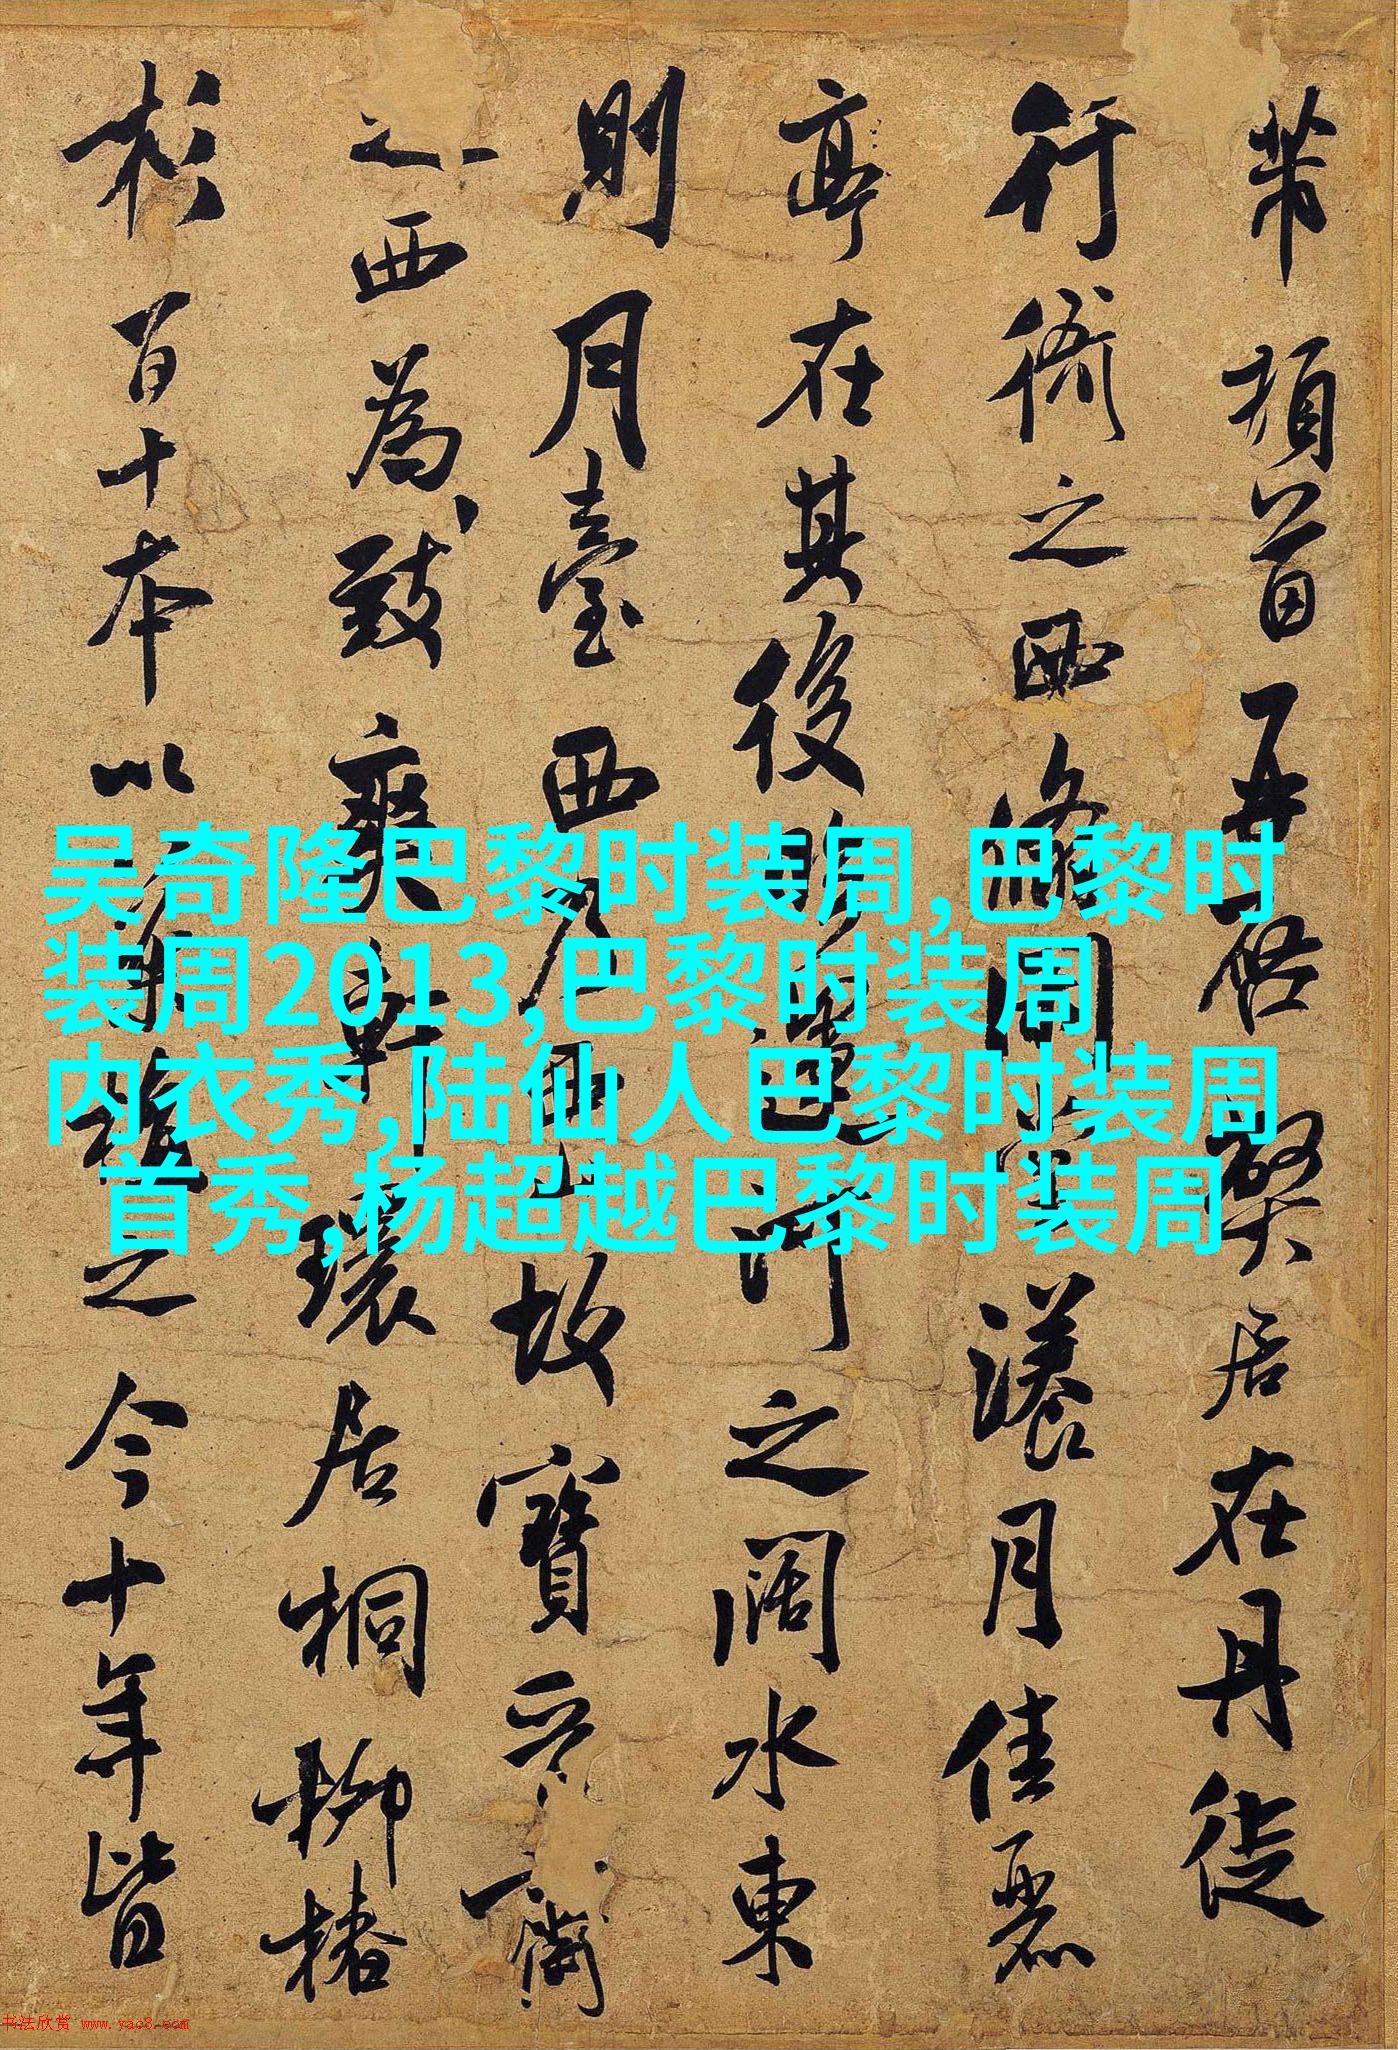 芾頓首再啓弊居在丹徒
行衙之西翛閑堂漾月佳麗
亭在其後臨運河之闊水東
則月臺西乃西山故寶晉齋
之西為致爽軒環居桐柳椿
杉百十本以藥植之今十年皆
吴奇隆巴黎时装周,巴黎时
装周2013,巴黎时装周
内衣秀,陆仙人巴黎时装周
首秀,杨超越巴黎时装周
书法欣赏 www.yac8.com